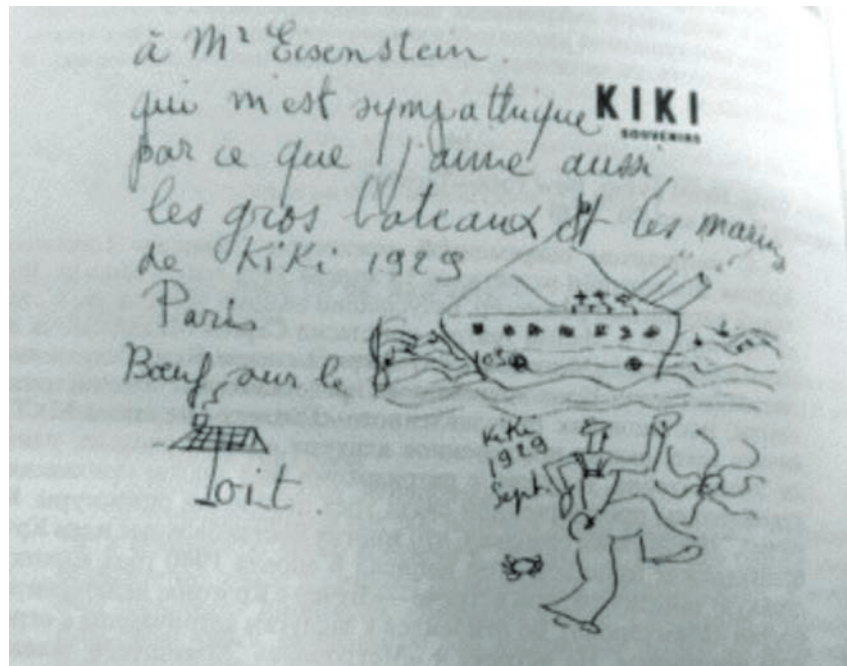 à Mr Eisenstein.
qui m'est sympathique
KIKI
SOUVENIRS
par ce que j'aime aussi
les gros bateaux et les marins
de KiKi 1929
Paris
Bœuf sur le
Toit.
1050
KiKi
1929
Sept.